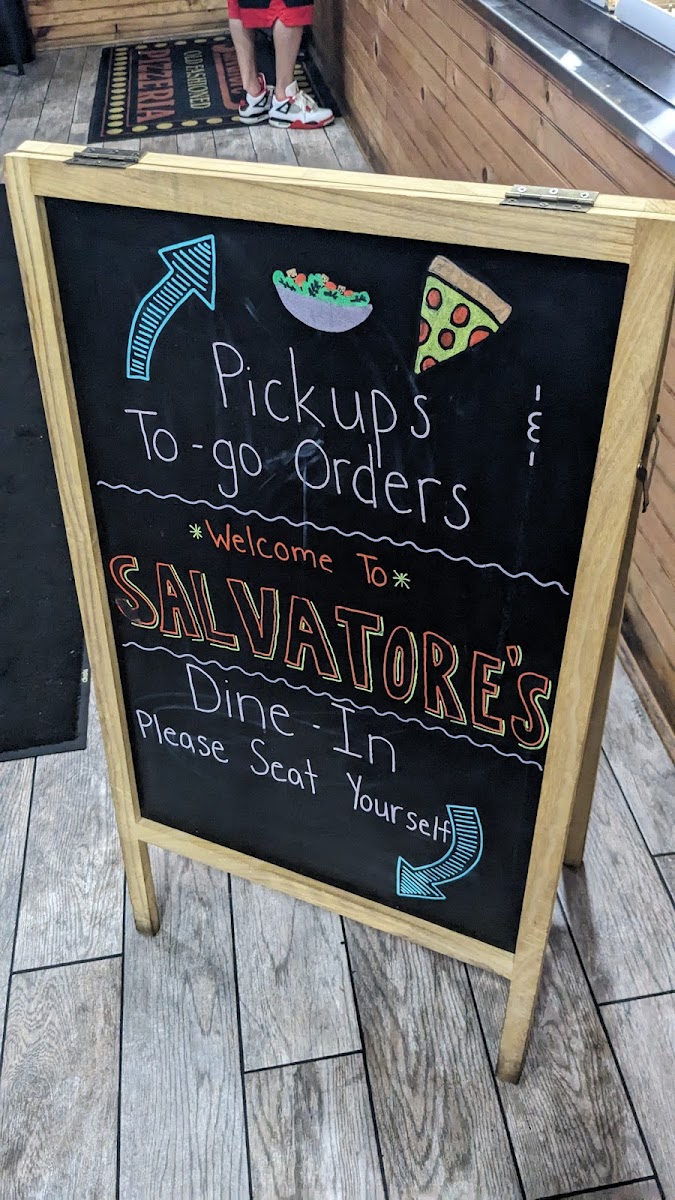 OLD FASHIONED
PIZZERIA
Pickups &
To-go Orders
*Welcome To*
SALVATORE'S
Dine-In
Please Seat Yourself